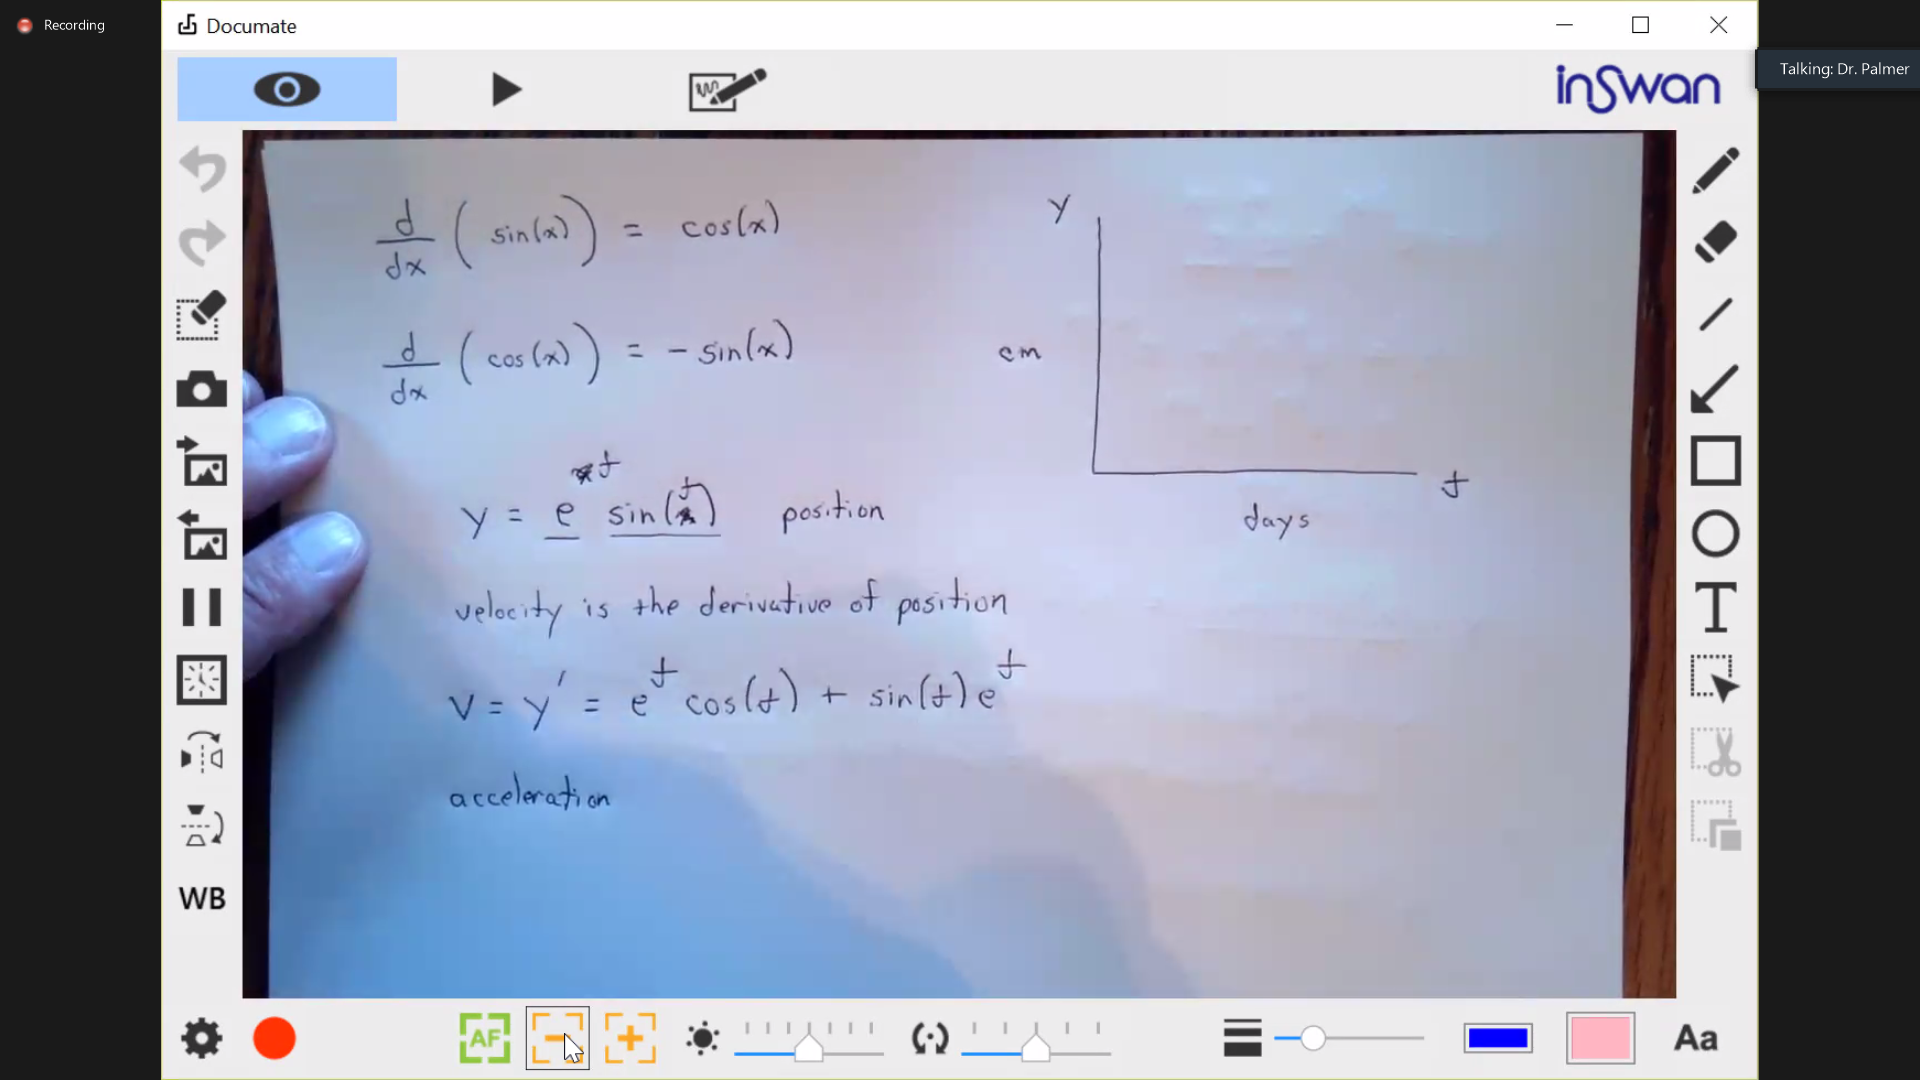 Recording
Documate
Talking: Dr. Palmer
inSwan
d/dx ( sin(x) ) = cos(x)
d/dx ( cos(x) ) = - sin(x)
y
cm
t
days
y = e^t sin(t) position
velocity is the derivative of position
v = y' = e^t cos(t) + sin(t) e^t
acceleration
T
WB
AF
Aa